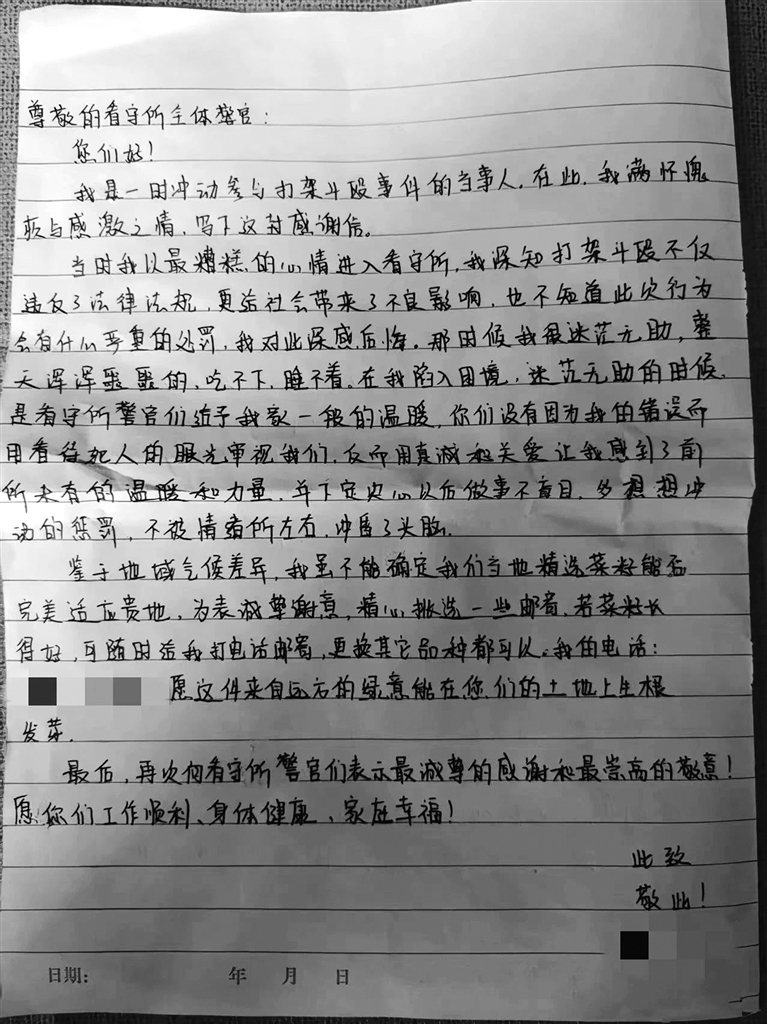 尊敬的看守所全体警官：
您们好！
我是一时冲动参与打架斗殴事件的当事人，在此，我满怀愧
疚与感激之情，写下这封感谢信。
当时我以最糟糕的心情进入看守所，我深知打架斗殴不仅
违反了法律法规，更给社会带来了不良影响，也不知道此次行为
会有什么严重的处罚，我对此深感后悔。那时候我很迷茫无助，整
天浑浑噩噩的，吃不下，睡不着。在我陷入困境，迷茫无助的时候，
是看守所警官们给予我家一般的温暖，你们没有因为我的错误而
用看待犯人的眼光审视我们，反而用真诚和关爱让我感到了前
所未有的温暖和力量，并下定决心以后做事不盲目，多想想冲
动的惩罚，不被情绪所左右，冲昏了头脑。
鉴于地域气候差异，我虽不能确定我们当地精选菜籽能否
完美适应贵地，为表诚挚谢意，精心挑选一些邮寄，若菜籽长
得好，可随时给我打电话邮寄，更换其它品种都可以。我的电话：
愿这件来自远方的绿意能在您们的土地上生根
发芽。
最后，再次向看守所警官们表示最诚尊的感谢和最崇高的敬意！
愿你们工作顺利、身体健康、家庭幸福！
此致
敬此！
日期： 年 月 日